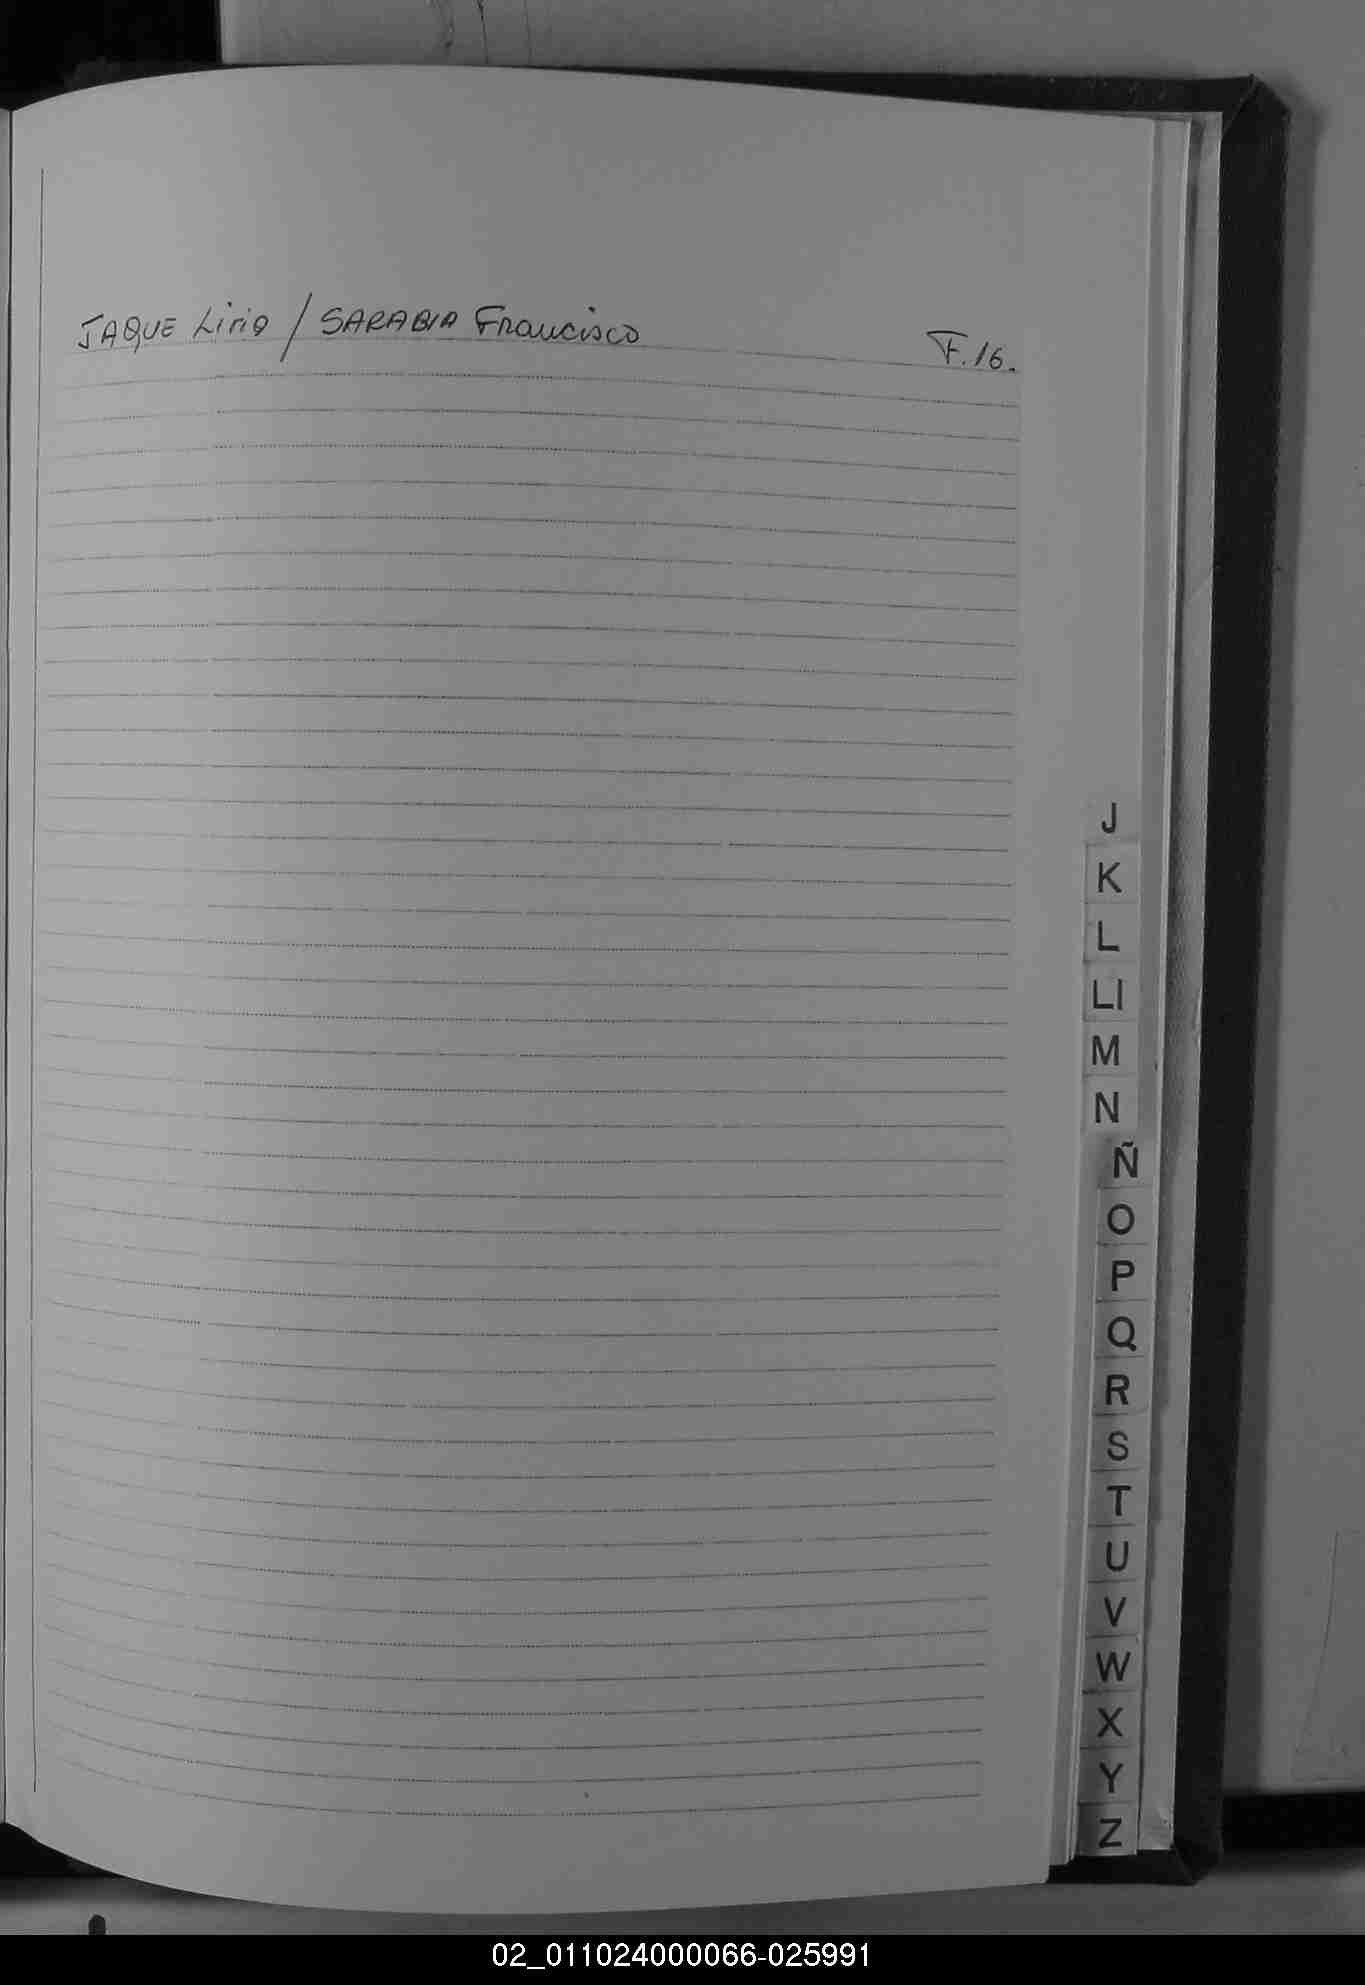 JAQUE Lirio / SARABIA Francisco F.16.
J
K
L
Ll
M
N
Ñ
O
P
Q
R
S
T
U
V
W
X
Y
Z
02_011024000066-025991